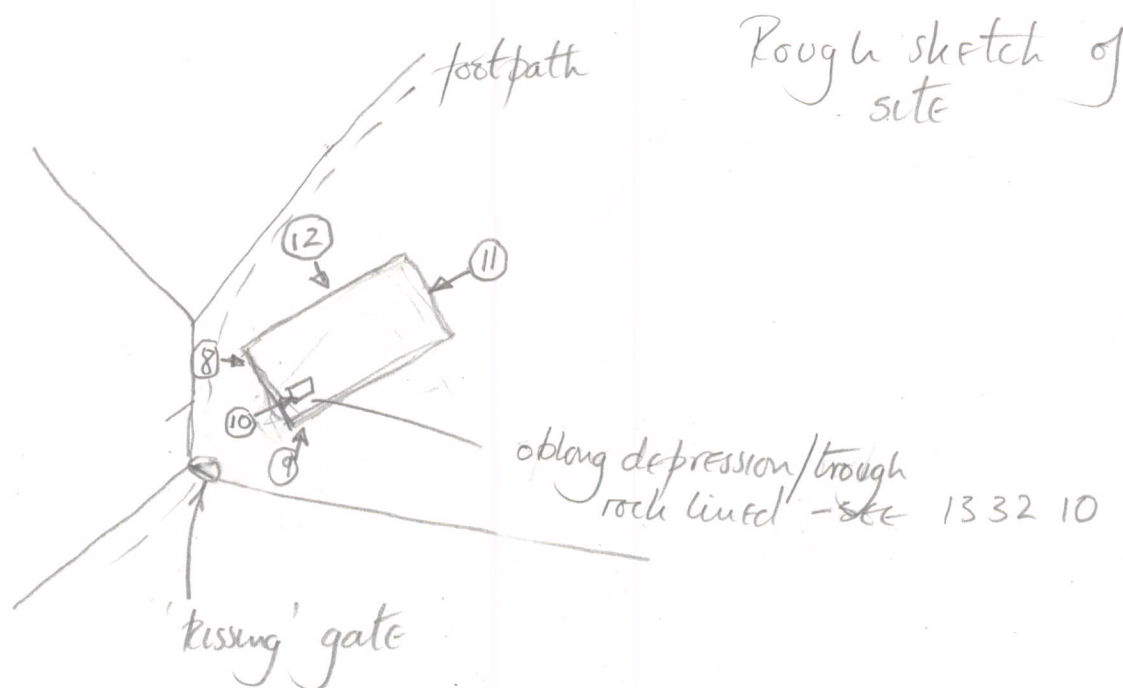 Rough sketch of
site
footpath
12
11
8
10
9
oblong depression/trough
rock lined - see 1332 10
'kissing' gate